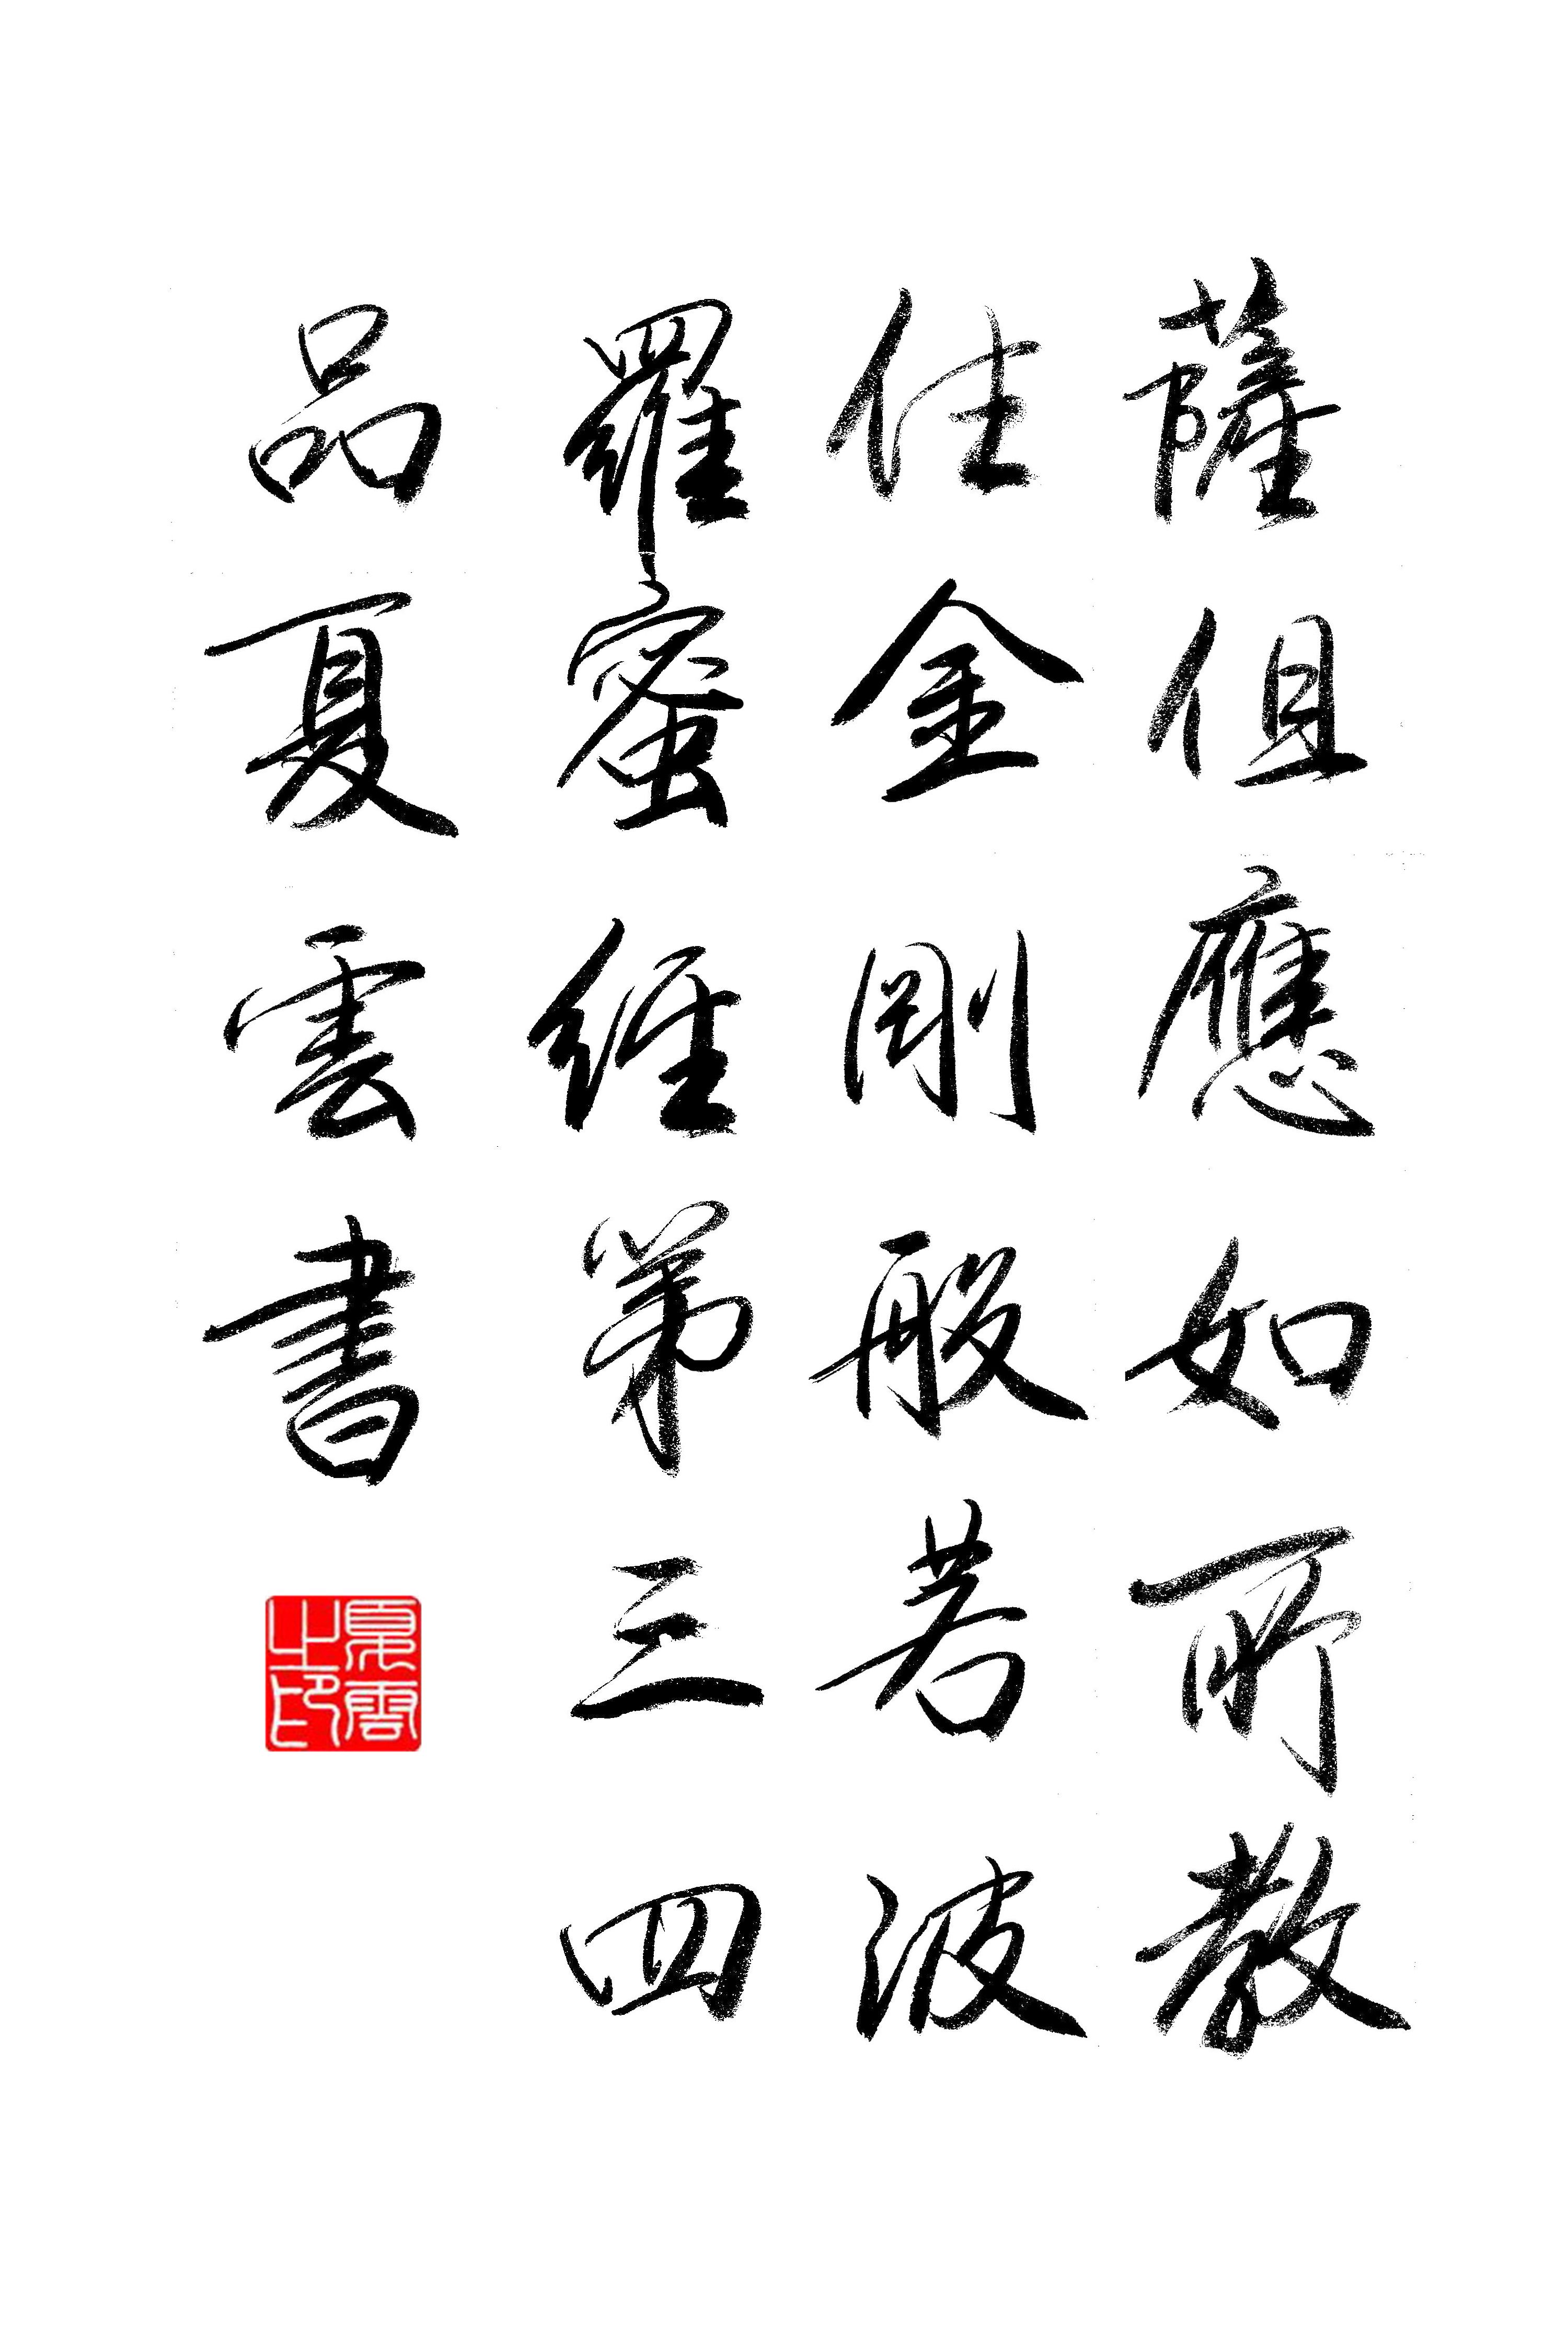 薩但應如所教
住金剛般若波
羅蜜經第三四
品夏雲書
夏雲之印